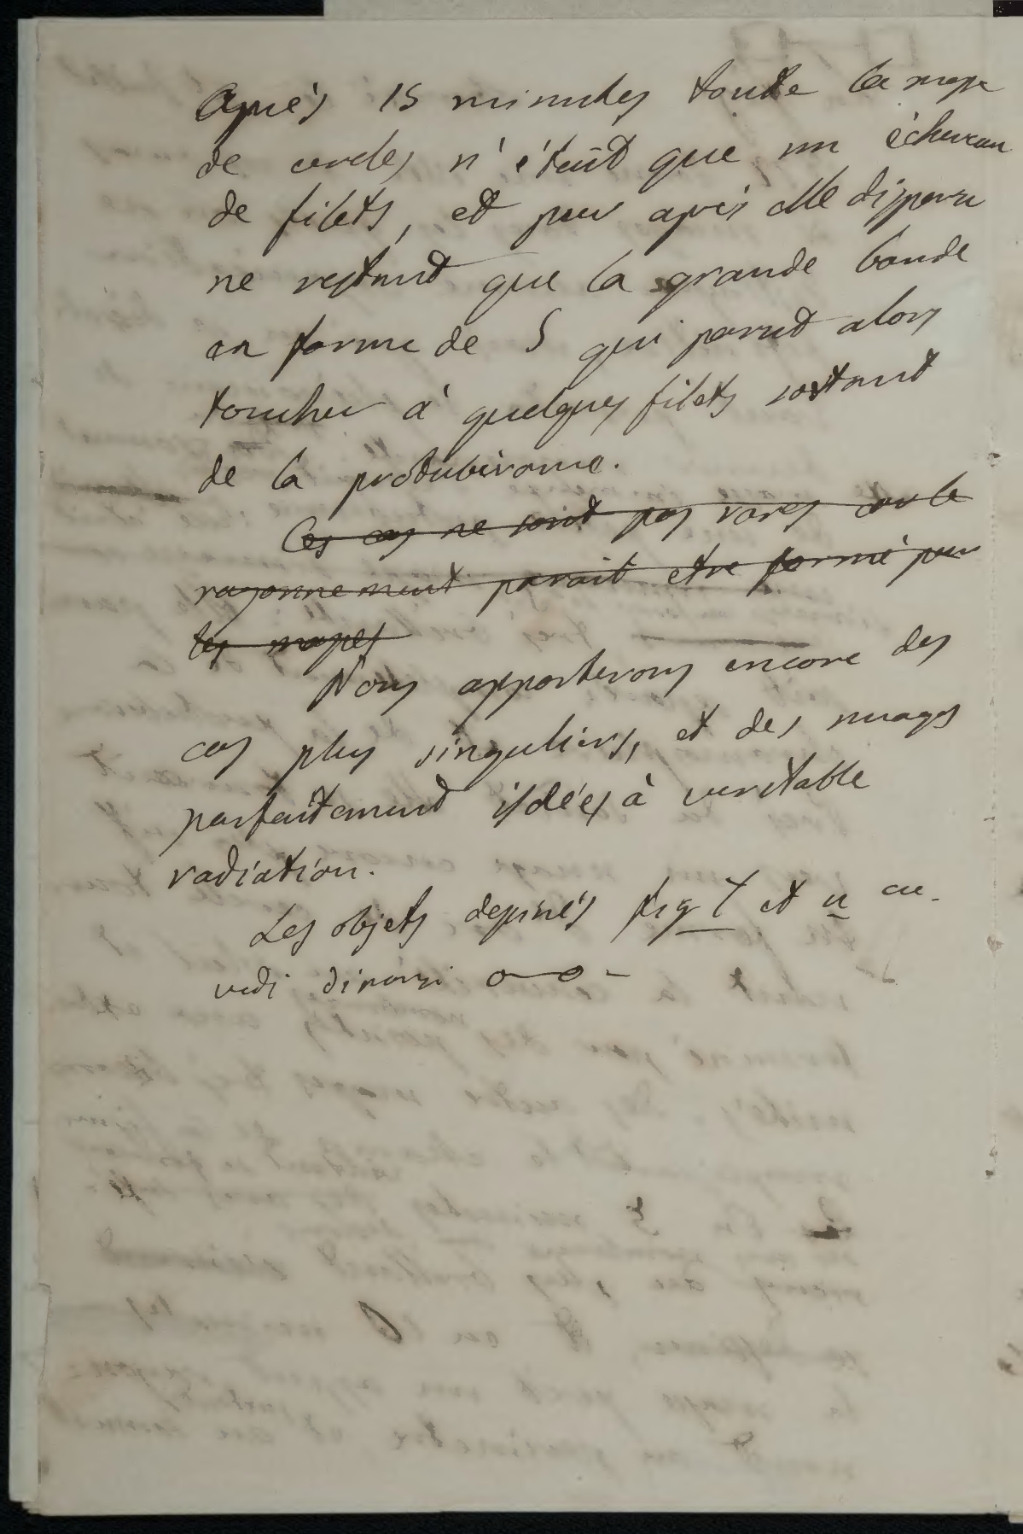 Après 15 minutes toute la masse
de cordes n'était que un écheveau
de filets, et peu après elle disparu
ne restant que la grande bande
en forme de S qui parut alors
toucher à quelques filets sortant
de la protubérance.
Ces cas ne sont pas rares car le
rayonnement parait etre formé par
les nuages
Nous apporterons encore des
cas plus singuliers, et des nuages
parfaitement isolées à veritable
radiation.
Les objets dessinés fig t et u
vedi dinanzi